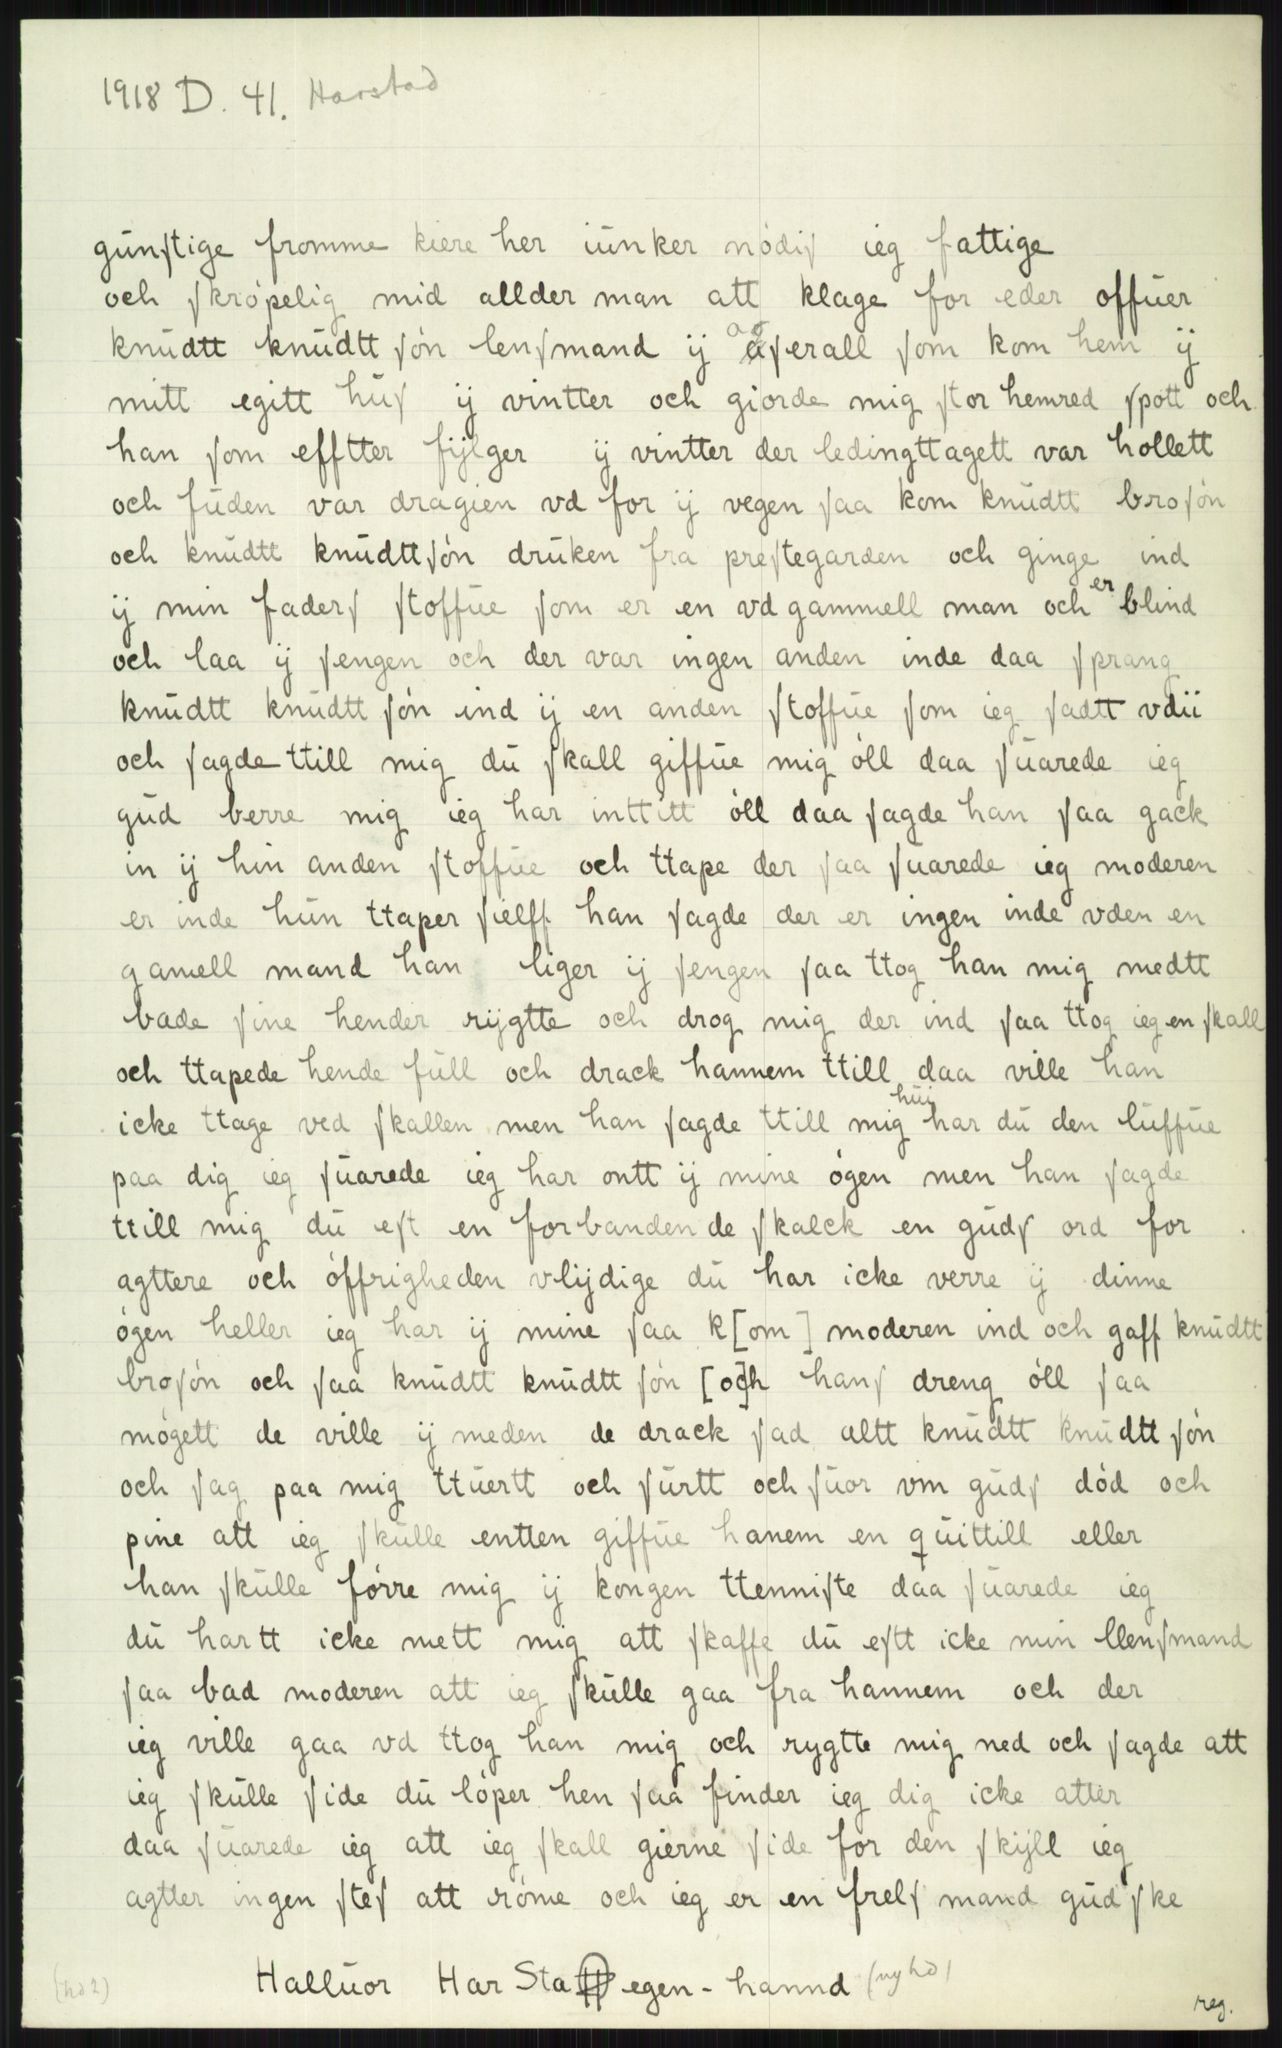 1918 D. 41. Harstad
gúnſtige fromme kiere her iúnker nódiſ ieg fattige
och ſkrópelig mid allder man att klage for eder offúer
knúdtt knúdtt ſón lenſmand ij aſerall ſom kom hem ij
mitt egitt húſ ij vintter och giorde mig ſtor hemred ſpott och
han ſom efftter fijlger ij vintter der ledingttagett var hollett
och fúden var dragien vd for ij vegen ſaa kom knúdtt broſón
och knúdtt knúdttſón drúken fra preſtegarden och ginge ind
ij min faderſ ſtoffúe ſom er en vd gammell man och er blind
och laa ij ſengen och der var ingen anden inde daa ſprang
knúdtt knúdtt ſón ind ij en anden ſtoffúe ſom ieg ſadtt vdii
och ſagde ttill mig dú ſkall giffúe mig óll daa ſúarede ieg
gúd berre mig ieg har inttitt óll daa ſagde han ſaa gack
in ij hin anden ſtoffúe och ttape der ſaa ſúarede ieg moderen
er inde hún ttaper ſielff han ſagde der er ingen inde vden en
gamell mand han liger ij ſengen ſaa ttog han mig medtt
bade ſine hender rijgtte och drog mig der ind ſaa ttog ieg en ſkall
och ttapede hende fúll och drack hannem ttill daa ville han
icke ttage ved ſkallen men han ſagde ttill mig húi har dú den lúffúe
paa dig ieg ſúarede ieg har ontt ij mine ógen men han ſagde
ttill mig dú eſt en forbanden de ſkalck en gúdſ ord for
agttere och óffrigheden vlijdige dú har icke verre ij dinne
ógen heller ieg har ij mine ſaa k[om] moderen ind och gaff knúdtt
broſón och ſaa knúdtt knúdtt ſón [oc]h hanſ dreng óll ſaa
mógett de ville ij meden de drack ſad altt knúdtt knúdtt ſón
och ſag paa mig ttúertt och ſúrtt och ſúor vm gúdſ dód och
pine att ieg ſkúlle entten giffúe hanem en qúittill eller
han ſkúlle fórre mig ij kongen ttenniſte daa ſúarede ieg
dú hartt icke mett mig att ſkaffe dú eſtt icke min llenſmand
ſaa bad moderen att ieg ſkúlle gaa fra hannem och der
ieg ville gaa vd ttog han mig och rygtte mig ned och ſagde att
ieg ſkúlle ſide dú lóper hen ſaa finder ieg dig icke atter
daa ſúarede ieg att ieg ſkall gierne ſide for den ſkijll ieg
agtter ingen ſteſ att róme och ieg er en frelſ mand gúd ſke
(hd 2) Hallúor Har Sta egen - hannd (ny hd)
reg.